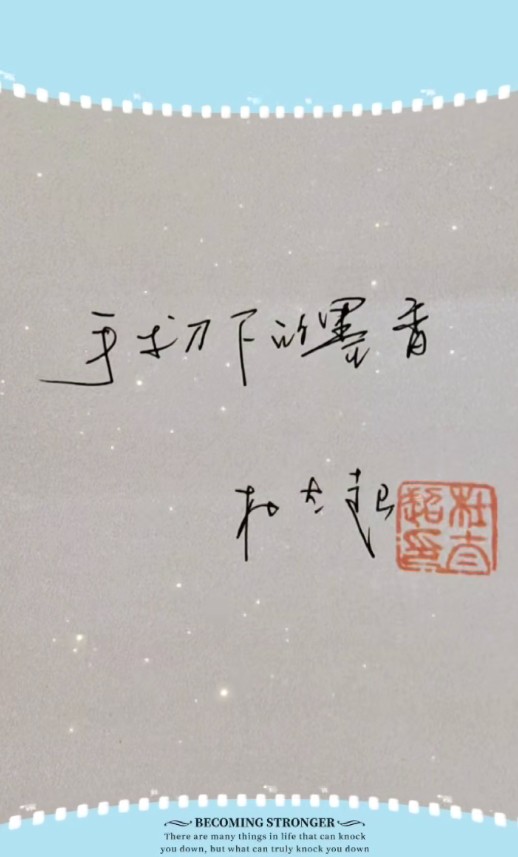 手术刀下的墨香
杜太超
BECOMING STRONGER
There are many things in life that can knock
you down, but what can truly knock you down